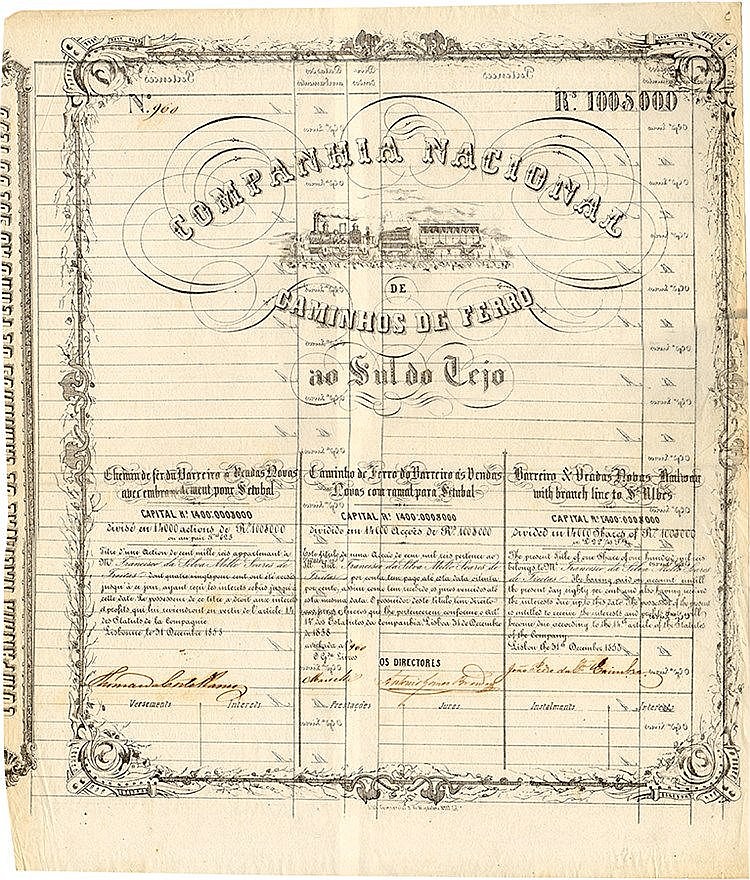 Nº 960
Rˢ 100$000
COMPANHIA NACIONAL
DE
CAMINHOS DE FERRO
ao Sul do Tejo
Chemin de fer du Barreiro à Vendas Novas
avec embranchement pour Setubal
CAPITAL Rˢ 1400:000$000
divisé en 14000 actions de Rˢ 100$000
Titre d'une Action de cent mille reis appartenant à
Mʳ Francisco da Silva Mello Soares de
Freitas dont quatre vingts pour cent ont été versés
jusqu'à ce jour, ayant reçu les interets echus jusqu'à
cette date. Le possesseur de ce titre a droit aux interets
et profits qui lui reviendront en vertu de l'article 14
des Statuts de la Compagnie
Lisbonne le 31 Decembre 1858
Versements Interets
Caminho de Ferro do Barreiro ás Vendas
Novas com ramal para Setubal
CAPITAL Rˢ 1400:000$000
dividido em 14000 Acções de Rˢ 100$000
Este titulo de uma Acção de cem mil reis pertence ao
Francisco da Silva Mello Soares de
Freitas por conta tem pago até esta data oitenta
por cento, assim como tem recebido os juros vencidos até
esta mesma data. O possuidor deste titulo tem direito
aos juros e lucros que lhe pertencerem, conforme o Artº
14º dos Estatutos da Companhia. Lisboa 31 de Dezembro
de 1858
OS DIRECTORES
Prestações Juros
Barreiro & Vendas Novas Railway
with branch line to Sᵗ Ubes
CAPITAL Rˢ 1400:000$000
Divided in 14000 Shares of Rˢ 100$000
The present Title of one Share of one hundred mil reis
belongs to Mʳ Francisco da Silva Mello Soares
de Freitas He having paid on account untill
the present day eighty per cent and also having received
the interests due up to this date. The possessor of the present
is entitled to receive the interests and profits that may
become due according to the 14ᵗʰ article of the Statutes
of the Company
Lisbon the 31ˢᵗ December 1858
Instalments Interests
COMPANHIA NACIONAL DE CAMINHOS DE FERRO AO SUL DO TEJO